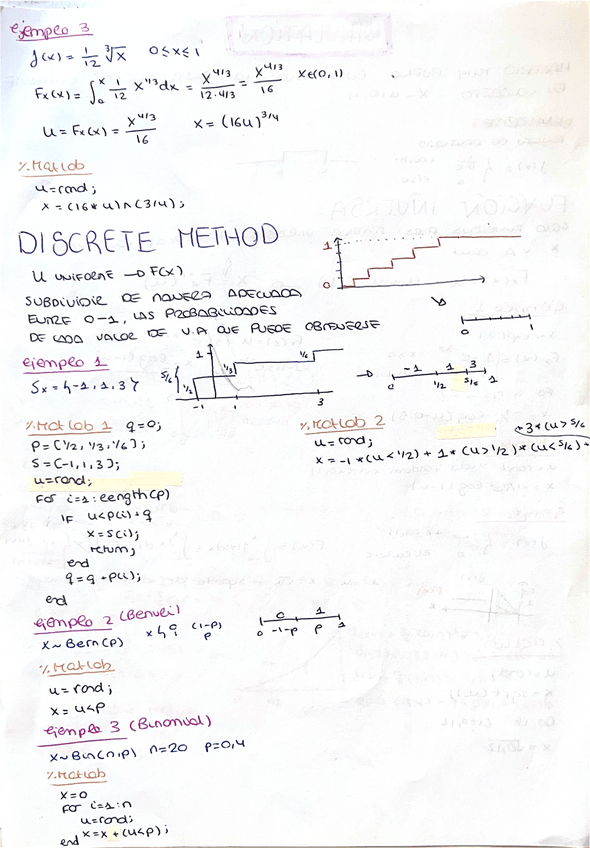 ejemplo 3
f(x) = 1/12 ∛x 0≤x≤1
Fx(x) = ∫₀ˣ 1/12 x^1/3 dx = x^4/3 / 12·4/3 = x^4/3 / 16 x∈(0,1)
u = Fx(x) = x^4/3 / 16 x = (16u)^3/4
%Matlab
u=rand;
x = (16*u)^(3/4);
DISCRETE METHOD
U UNIFORME → F(x)
SUBDIVIDIR DE MANERA ADECUADA
ENTRE 0-1, LAS PROBABILIDADES
DE CADA VALOR DE V.A QUE PUEDE OBTENERSE
1
0
0 1
ejemplo 1
Sx = {-1, 1, 3}
1 5/6 1/2 1/3 1/6
-1 1 3
→ -1 1 3
0 1/2 5/6 1
%Matlab 1 q=0;
P=[1/2, 1/3, 1/6];
S=[-1,1,3];
u=rand;
For i=1:length(p)
IF u<p(i)+q
x=s(i);
return;
end
q=q+p(i);
end
%Matlab 2
u=rand;
x = -1*(u<1/2) + 1*(u>1/2)*(u<5/6)+
+3*(u>5/6
ejemplo 2 (Bernuei)
x~Bern(p) x{ 0 (1-p)
1 p
0 1
0 -1-p p 1
%Matlab
u=rand;
x = u<p
ejemplo 3 (Binomial)
x~Bin(n,p) n=20 p=0,4
%Matlab
x=0
For i=1:n
u=rand;
x=x+(u<p);
end